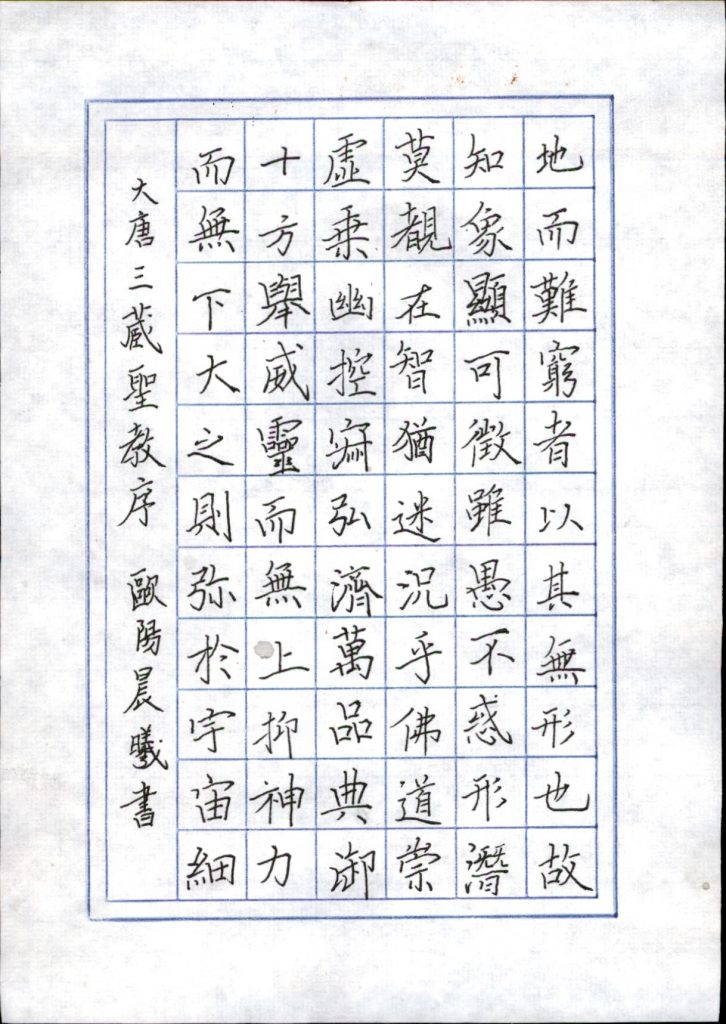 地而難窮者以其無形也故
知象顯可徵雖愚不惑形潛
莫覩在智猶迷況乎佛道崇
虛乗幽控寂弘濟萬品典御
十方舉威靈而無上抑神力
而無下大之則弥於宇宙細
大唐三蔵聖教序 歐陽晨曦書